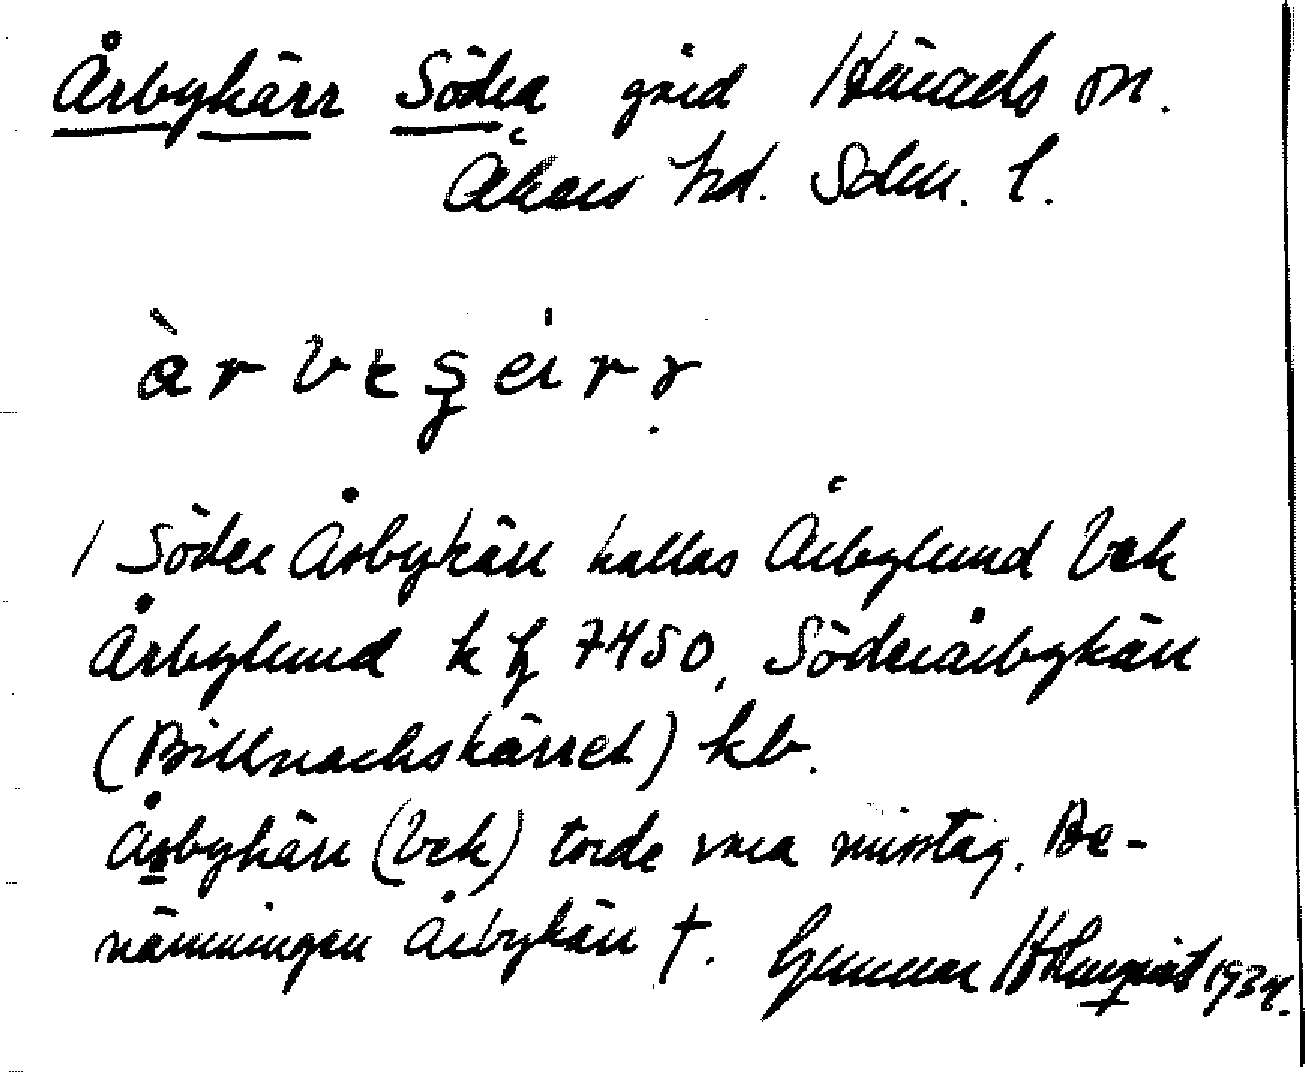 Årbykärr Södra gård Härads sn.
Åkers hd. Söderm. l.
1 Söder Åsbykärr kallas Årbylund Vek
Årbylund k f 7450, Söderårbykärr
(Billsnackskärret) kb.
Åsbykärr (Vek) torde vara misstag. Be-
nämningen Årbykärr †. Gunnar Holmqvist 1934.